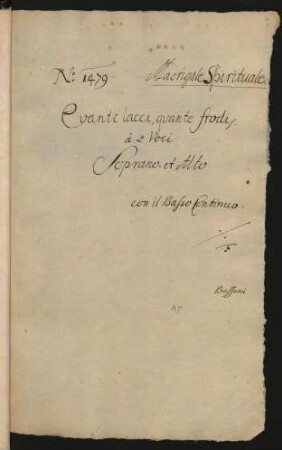 No: 1479 Madrigale Spirituale.
Quanti lacci, quante frodi,
à 2 Voci
Soprano. et Alto
con il Basso Continuo.
Bassani